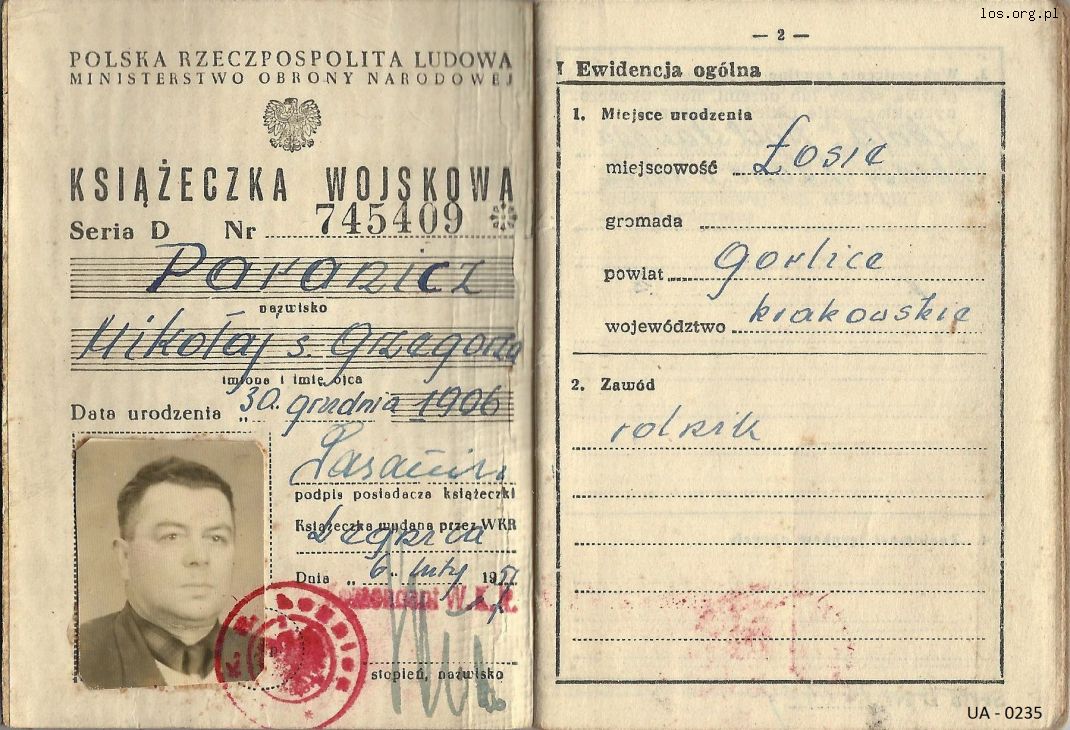 los.org.pl
POLSKA RZECZPOSPOLITA LUDOWA
MINISTERSTWO OBRONY NARODOWEJ
KSIĄŻECZKA WOJSKOWA
Seria D Nr 745409
nazwisko
Mikołaj s. Grzegorza
imiona i imię ojca
Data urodzenia 30. grudnia 1906
podpis posiadacza książeczki
Książeczka wydana przez WKR
Dnia „ 6 luty 195
W.K.R.
stopień, nazwisko
— 2 —
I Ewidencja ogólna
1. Miejsce urodzenia
miejscowość Łosie
gromada
powiat Gorlice
województwo krakowskie
2. Zawód
rolnik
UA - 0235